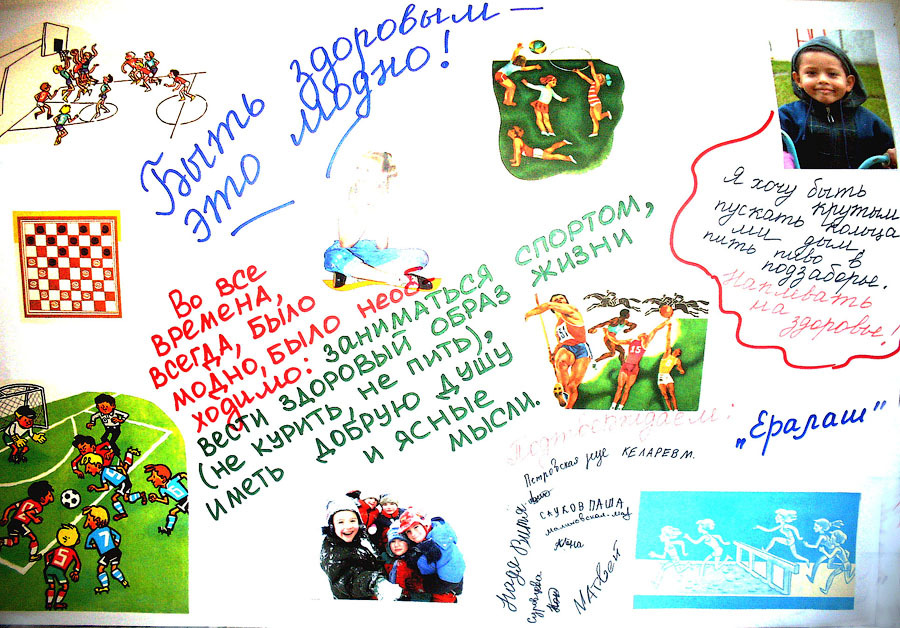 Быть здоровым —
это модно!
Во все
времена,
всегда, было
модно, было необ
ходимо: заниматься спортом,
вести здоровый образ жизни
(не курить, не пить),
иметь добрую душу
и ясные
мысли.
Я хочу быть
крутым
пускать кольца
ми дым,
пить пиво в
подзаборье.
Наплевать
на
здоровье!
„Ералаш"
Подтверждаем:
Петровская КЕЛАРЕВ М.
САУКОВ ПАША
Малиновская
Надя Витя
Матвей
5
15